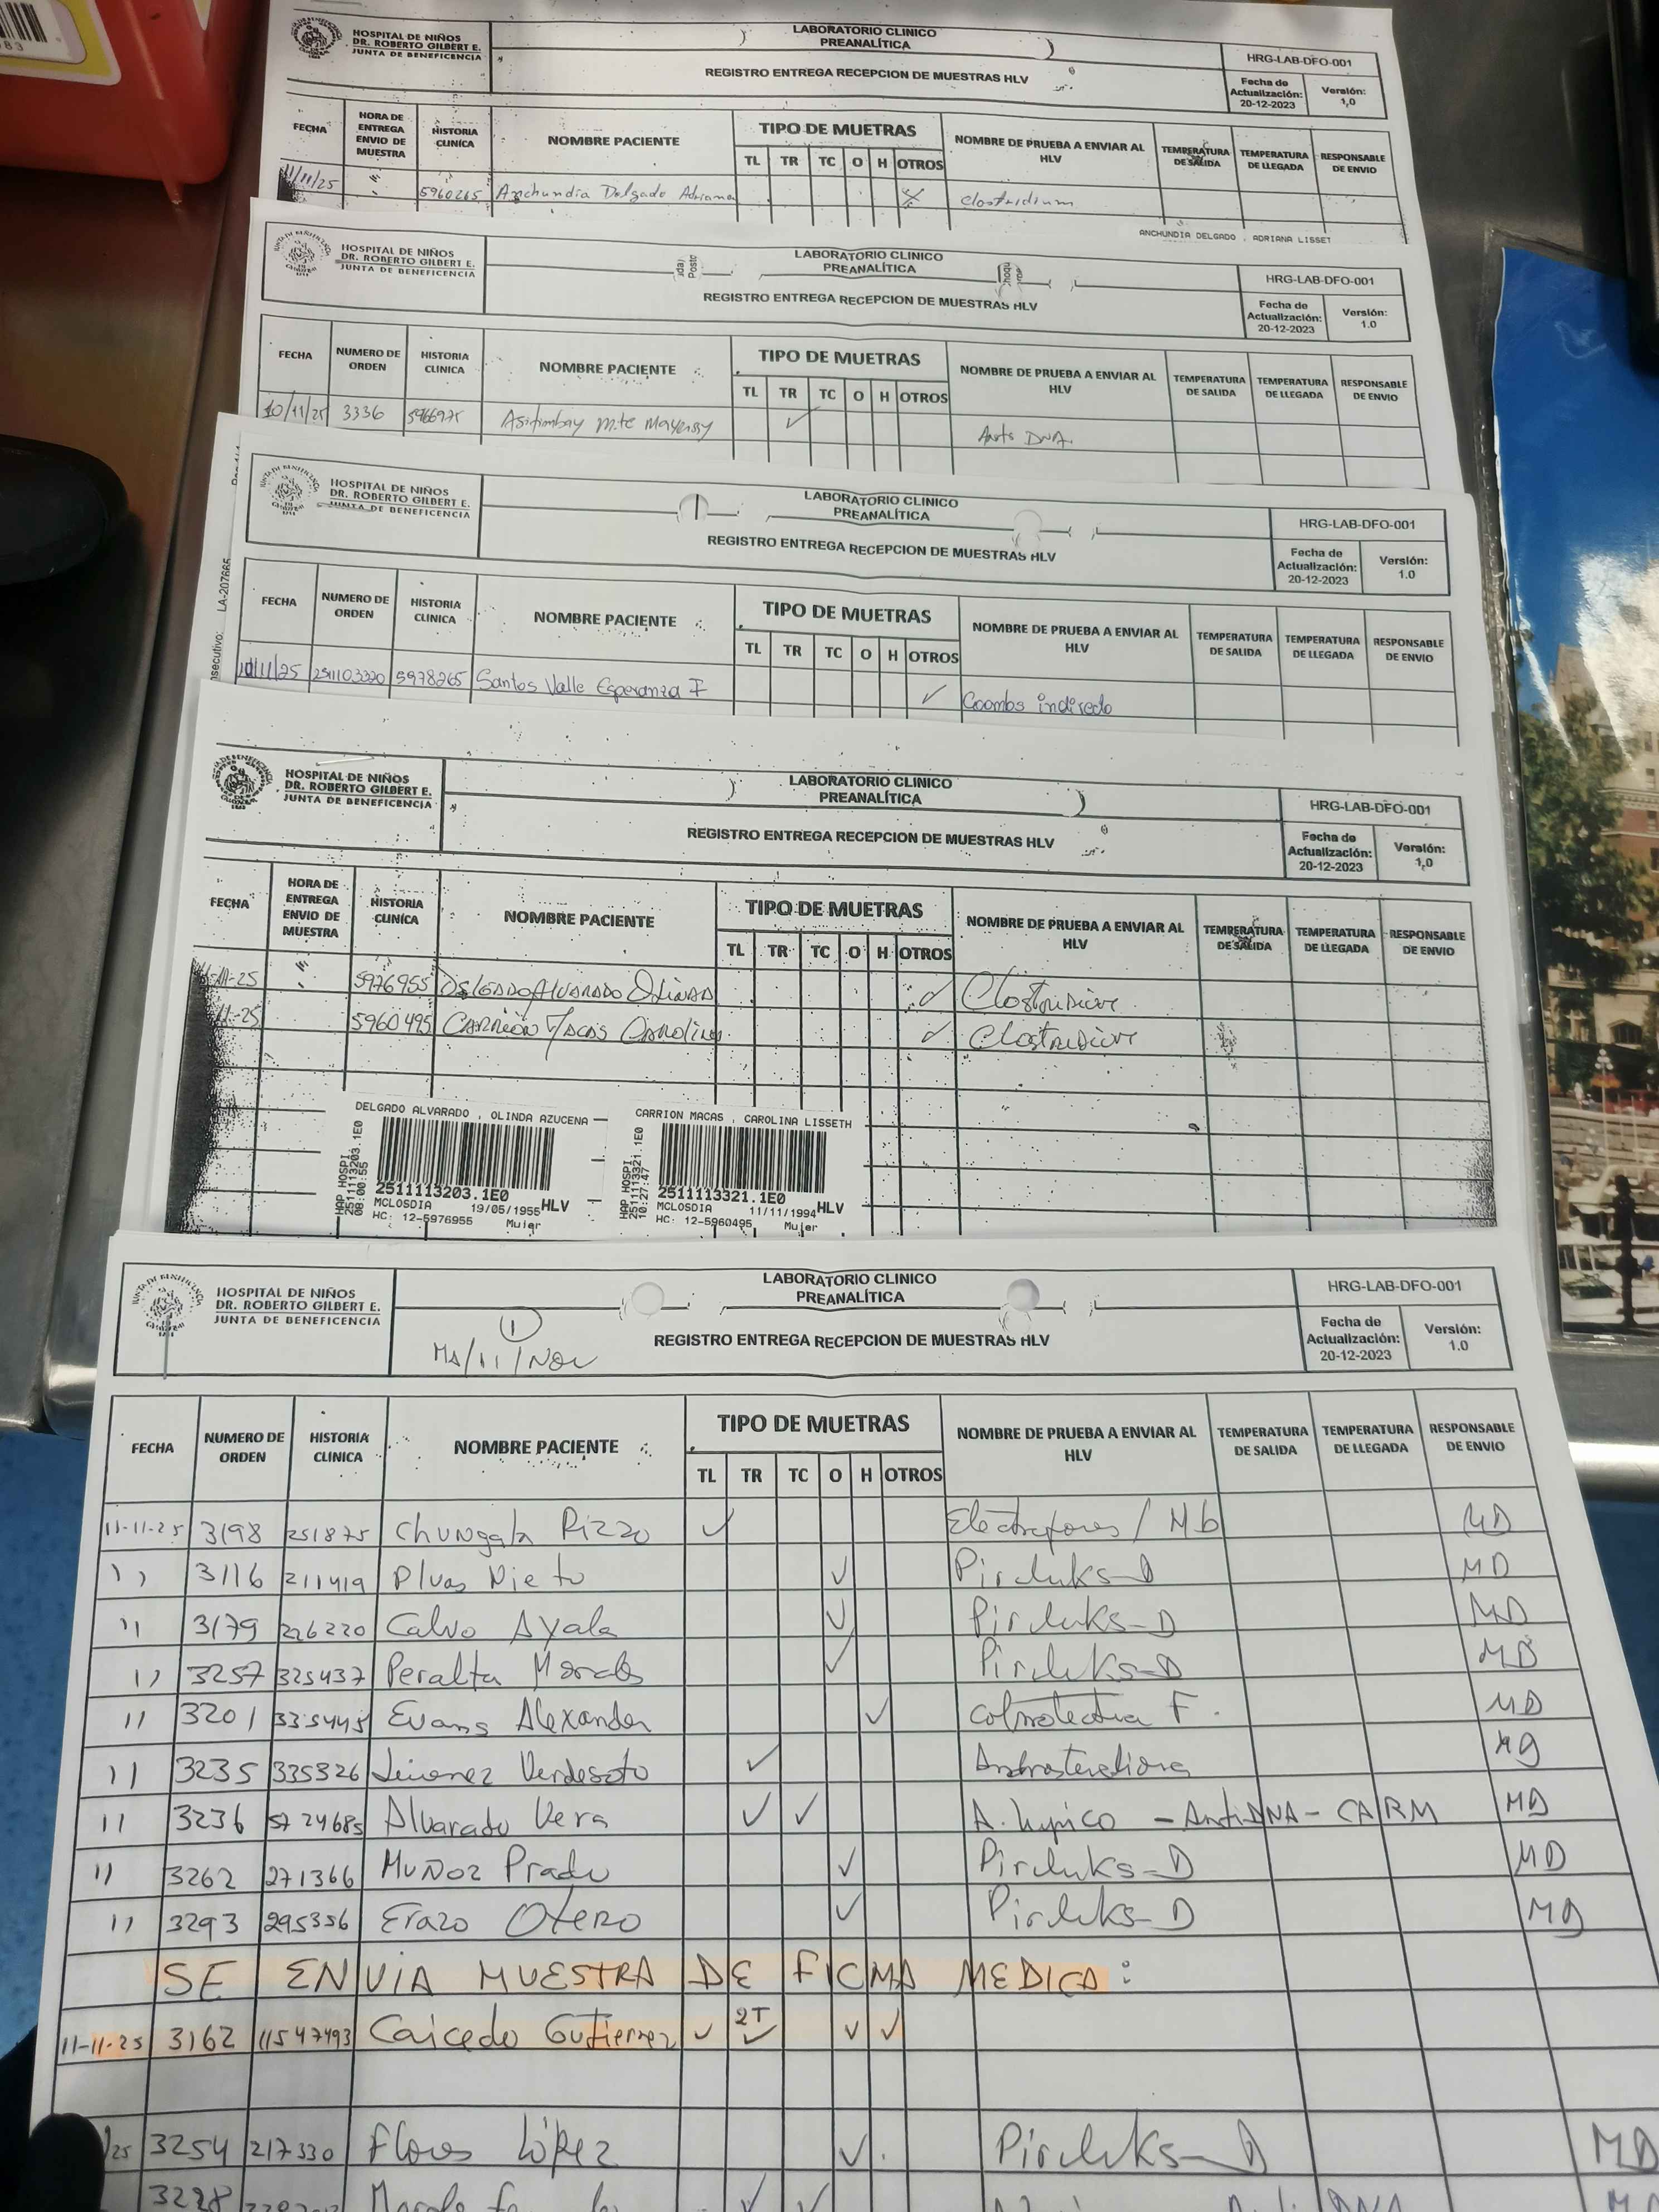 HOSPITAL DE NIÑOS
DR. ROBERTO GILBERT E.
JUNTA DE BENEFICENCIA
LABORATORIO CLINICO
PREANALÍTICA
REGISTRO ENTREGA RECEPCION DE MUESTRAS HLV
HRG-LAB-DFO-001
Fecha de Actualización: 20-12-2023 Versión: 1,0
FECHA HORA DE ENTREGA ENVIO DE MUESTRA HISTORIA CLINICA NOMBRE PACIENTE TIPO DE MUETRAS TL TR TC O H OTROS NOMBRE DE PRUEBA A ENVIAR AL HLV TEMPERATURA DE SALIDA TEMPERATURA DE LLEGADA RESPONSABLE DE ENVIO
11/11/25 5960265 Anchundia Delgado Adriana Clostridium
ANCHUNDIA DELGADO , ADRIANA LISSET
HOSPITAL DE NIÑOS
DR. ROBERTO GILBERT E.
JUNTA DE BENEFICENCIA
LABORATORIO CLINICO
PREANALÍTICA
REGISTRO ENTREGA RECEPCION DE MUESTRAS HLV
HRG-LAB-DFO-001
Fecha de Actualización: 20-12-2023 Versión: 1.0
FECHA NUMERO DE ORDEN HISTORIA CLINICA NOMBRE PACIENTE TIPO DE MUETRAS TL TR TC O H OTROS NOMBRE DE PRUEBA A ENVIAR AL HLV TEMPERATURA DE SALIDA TEMPERATURA DE LLEGADA RESPONSABLE DE ENVIO
10/11/25 3336 ✓ DNA.
HOSPITAL DE NIÑOS
DR. ROBERTO GILBERT E.
JUNTA DE BENEFICENCIA
LABORATORIO CLINICO
PREANALÍTICA
REGISTRO ENTREGA RECEPCION DE MUESTRAS HLV
HRG-LAB-DFO-001
Fecha de Actualización: 20-12-2023 Versión: 1.0
LA-207665
FECHA NUMERO DE ORDEN HISTORIA CLINICA NOMBRE PACIENTE TIPO DE MUETRAS TL TR TC O H OTROS NOMBRE DE PRUEBA A ENVIAR AL HLV TEMPERATURA DE SALIDA TEMPERATURA DE LLEGADA RESPONSABLE DE ENVIO
10/11/25 2511103320 5978265 Santos Valle Esperanza F ✓ Coombs indirecto
HOSPITAL DE NIÑOS
DR. ROBERTO GILBERT E.
JUNTA DE BENEFICENCIA
LABORATORIO CLINICO
PREANALÍTICA
REGISTRO ENTREGA RECEPCION DE MUESTRAS HLV
HRG-LAB-DFO-001
Fecha de Actualización: 20-12-2023 Versión: 1,0
FECHA HORA DE ENTREGA ENVIO DE MUESTRA HISTORIA CLINICA NOMBRE PACIENTE TIPO DE MUETRAS TL TR TC O H OTROS NOMBRE DE PRUEBA A ENVIAR AL HLV TEMPERATURA DE SALIDA TEMPERATURA DE LLEGADA RESPONSABLE DE ENVIO
5976955 DELGADO ALVARADO OLINDA ✓
5960495 CARRIÓN MACAS CAROLINA ✓
DELGADO ALVARADO , OLINDA AZUCENA
2511113203.1E0
08:00:55
2511113203.1E0 HLV
MCLOSDIA 19/05/1955
HC: 12-5976955 Mujer
CARRION MACAS , CAROLINA LISSETH
2511113321.1E0
10:27:47
2511113321.1E0 HLV
MCLOSDIA 11/11/1994
HC: 12-5960495 Mujer
HOSPITAL DE NIÑOS
DR. ROBERTO GILBERT E.
JUNTA DE BENEFICENCIA
1
MA/11/NOV
LABORATORIO CLINICO
PREANALÍTICA
REGISTRO ENTREGA RECEPCION DE MUESTRAS HLV
HRG-LAB-DFO-001
Fecha de Actualización: 20-12-2023 Versión: 1.0
FECHA NUMERO DE ORDEN HISTORIA CLINICA NOMBRE PACIENTE TIPO DE MUETRAS TL TR TC O H OTROS NOMBRE DE PRUEBA A ENVIAR AL HLV TEMPERATURA DE SALIDA TEMPERATURA DE LLEGADA RESPONSABLE DE ENVIO
11-11-25 3198 251875 Chungata Rizzo ✓ / Hb MD
11 3116 211419 Pluas Nieto ✓ Piruluks-D MD
11 3179 226220 Calvo Ayala ✓ Piruluks-D MD
11 3257 325437 Peralta Morales ✓ Piruluks-D MD
11 3201 335445 Evans Alexander ✓ F. MD
11 3235 335326 Jimenez Verdesoto ✓ MD
11 3236 5724685 Alvarado Vera ✓ ✓ A. lupico - AntiDNA - CARM MD
11 3262 271366 Muñoz Prado ✓ Piruluks-D MD
11 3293 295356 Erazo Otero ✓ Piruluks-D MD
SE ENVIA MUESTRA DE FICMA MEDICA:
11-11-25 3162 11547493 Caicedo Gutierrez ✓ 2T ✓ ✓ ✓
/25 3254 217330 Flores López ✓ Piruluks-D MD
3228